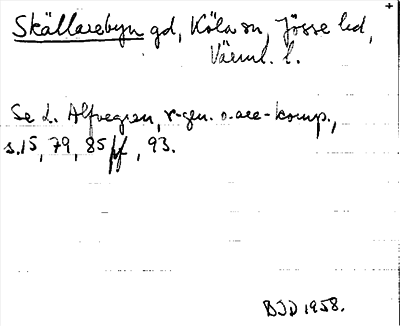 Skällarebyn gd, Köla sn, Jösse hd,
Värml. l.
Se L. Alfvegren, r-gen. o. ack-komp.,
s. 15, 79, 85 ff, 93.
BJD 1958.